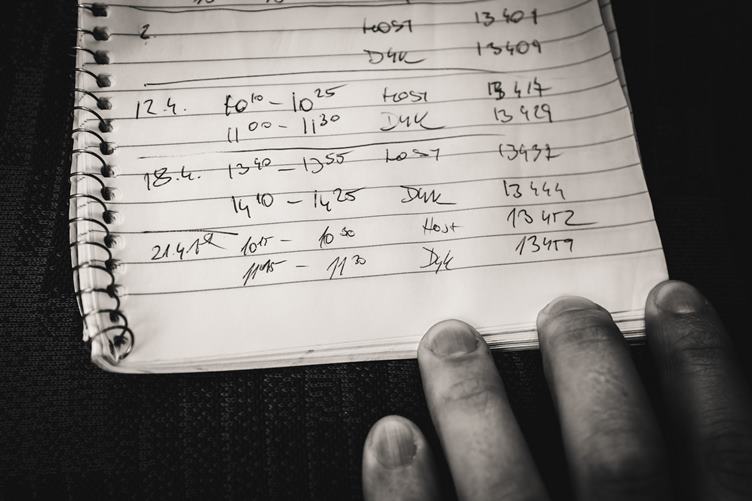 2. Host 13401
Dyk 13409
12.4. 10¹⁰ – 10²⁵ Host 13417
11⁰⁰ – 11³⁰ Dyk 13429
18.4. 13⁴⁰ – 13⁵⁵ Host 13437
14¹⁰ – 14²⁵ Dyk 13444
21.4. 10¹⁵ – 10³⁰ Host 13452
11¹⁵ – 11³⁰ Dyk 13459